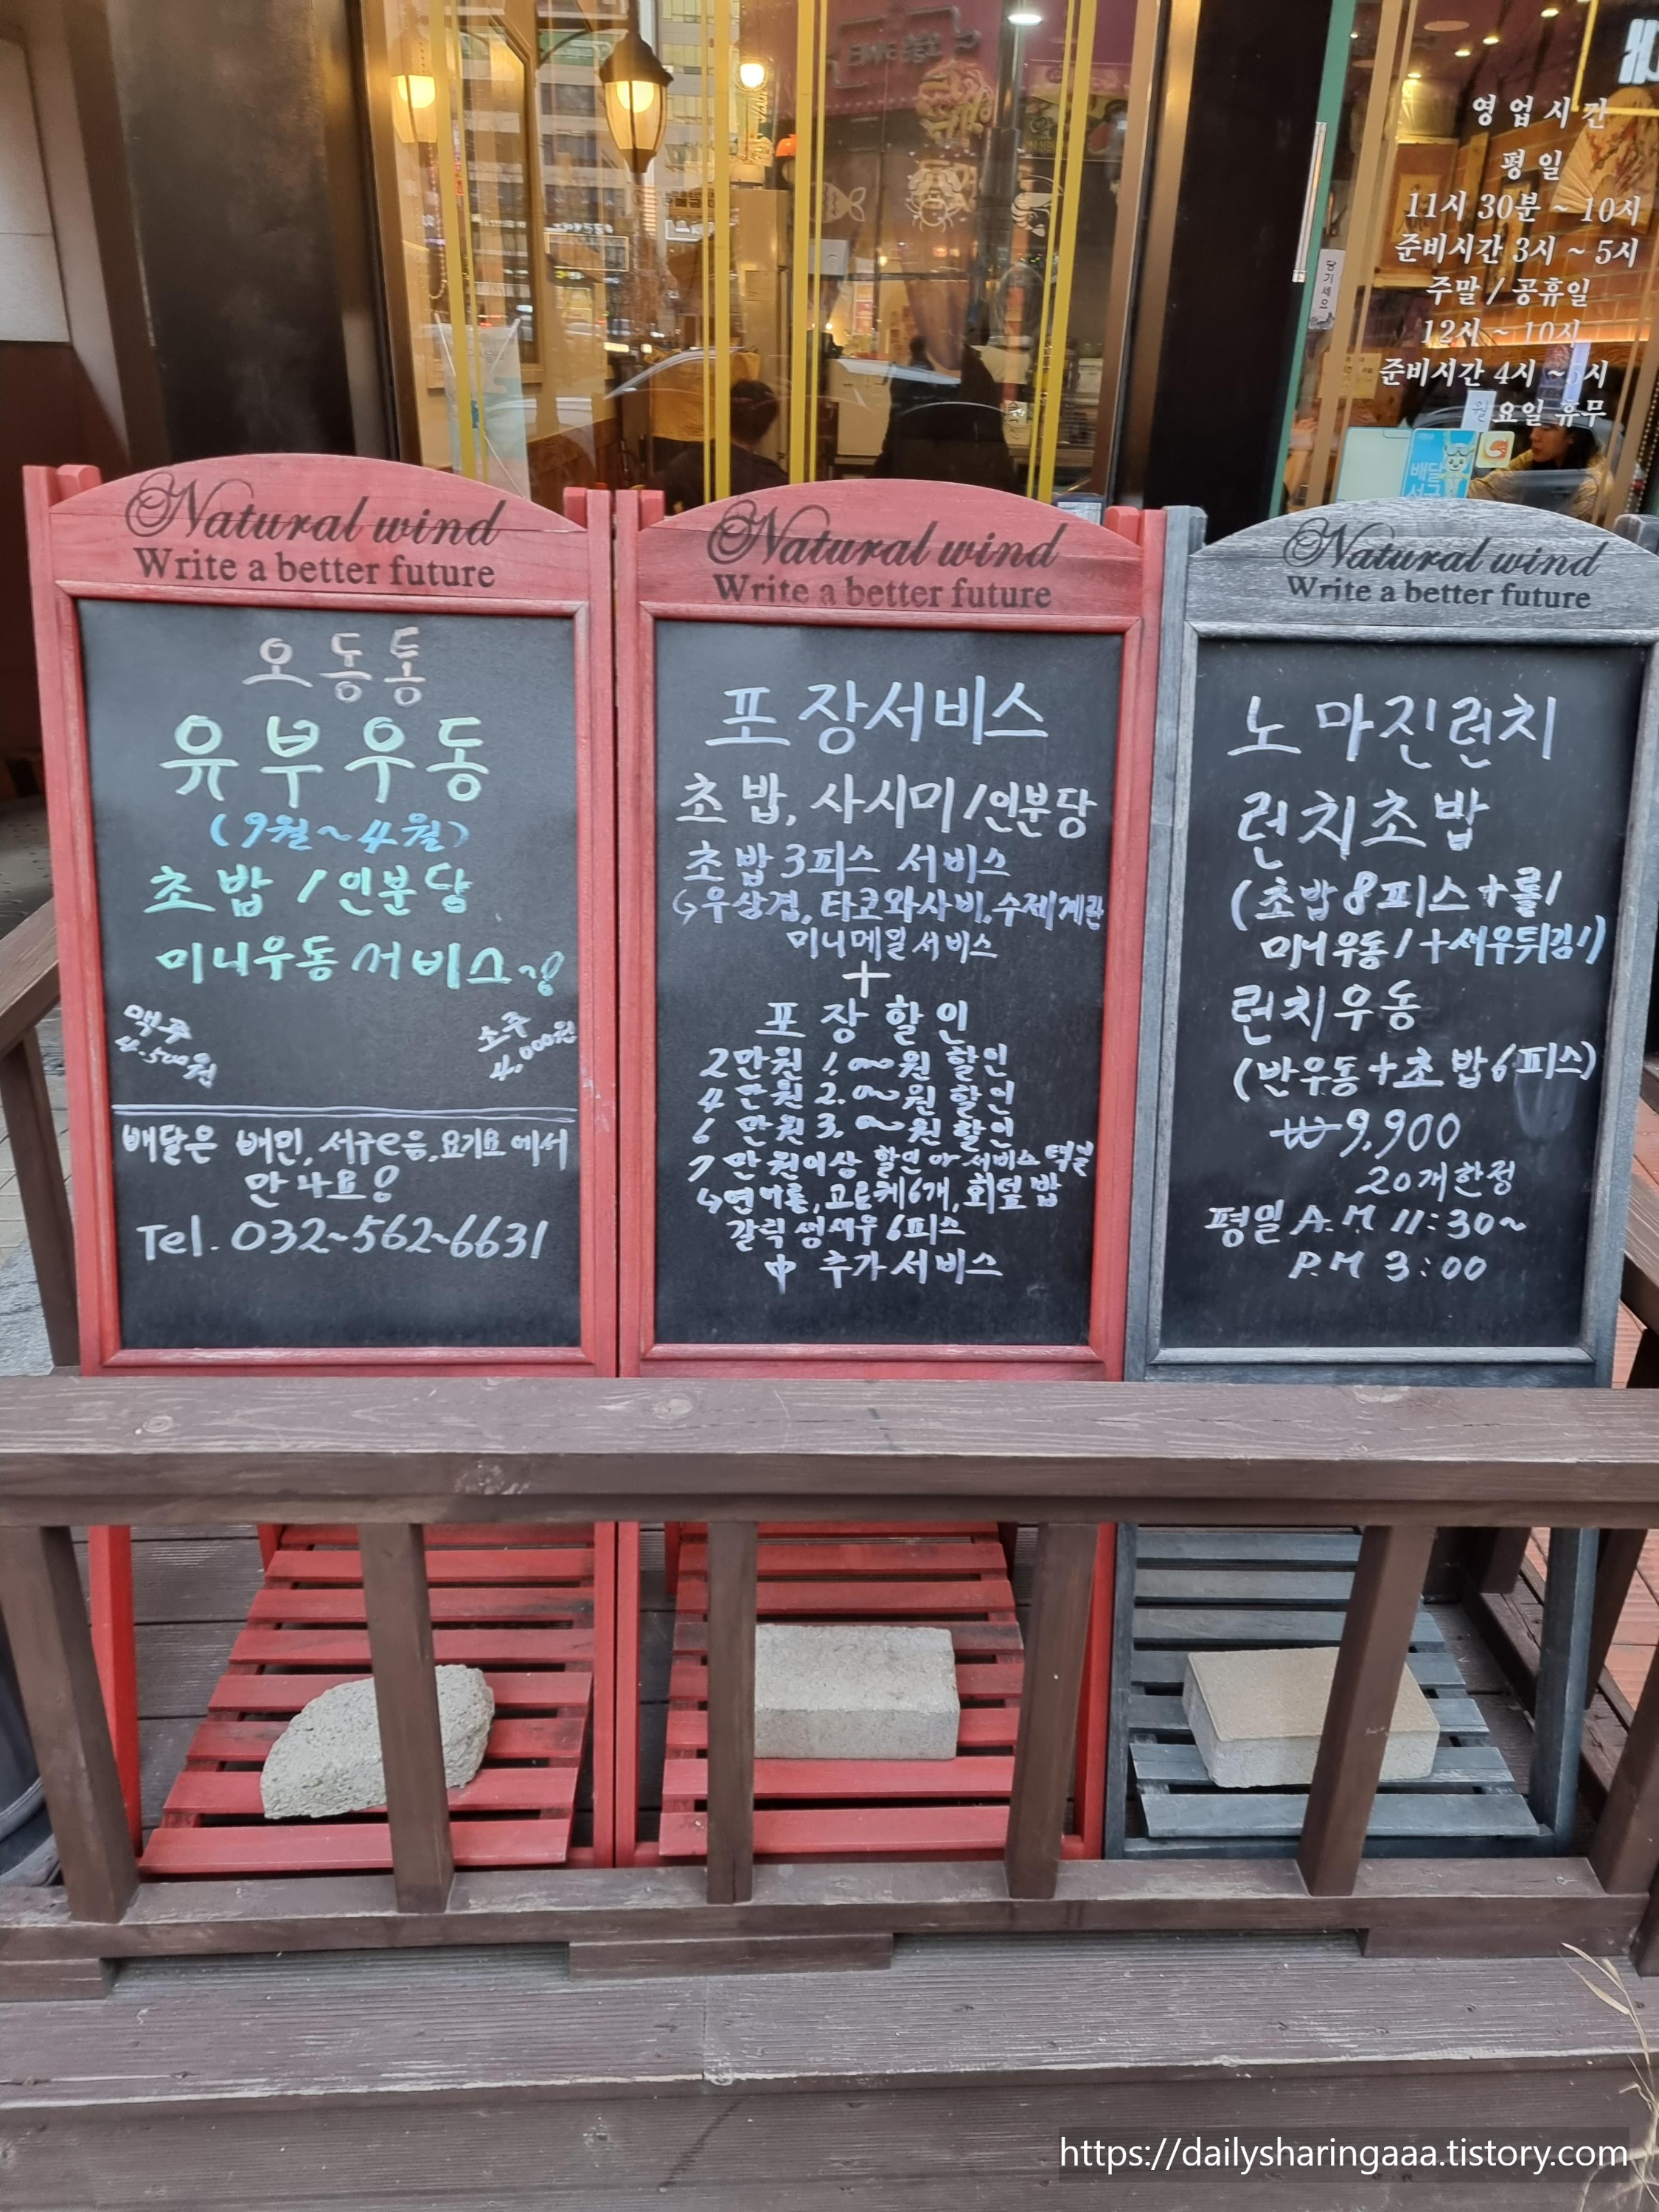 영업시간
평일
11시 30분 ~ 10시
준비시간 3시 ~ 5시
주말 / 공휴일
12시 ~ 10시
준비시간 4시 ~ 5시
월요일 휴무
당기세요
배달
서구
Natural wind
Write a better future
오동통
유부우동
(9월~4월)
초밥/인분당
미니우동서비스~!
맥주
4.500원
소주
4,000원
배달은 배민,서구e음,요기요에서
만나요!
Tel. 032~562~6631
Natural wind
Write a better future
포장서비스
초밥, 사시미/인분당
초밥3피스 서비스
우삼겹, 타코와사비,수제계란
미니메밀서비스
+
포장할인
2만원 1.000원 할인
4만원 2.000원 할인
6만원 3.000원 할인
7만원이상 할인 or 서비스 택일
연어롤,고로케6개,회덮밥
갈릭생새우6피스
中 추가서비스
Natural wind
Write a better future
노마진런치
런치초밥
(초밥8피스+롤1
미니우동1+새우튀김1)
런치우동
(반우동+초밥6피스)
₩9,900
20개한정
평일 A.M 11:30~
P.M 3:00
https://dailysharingaaa.tistory.com